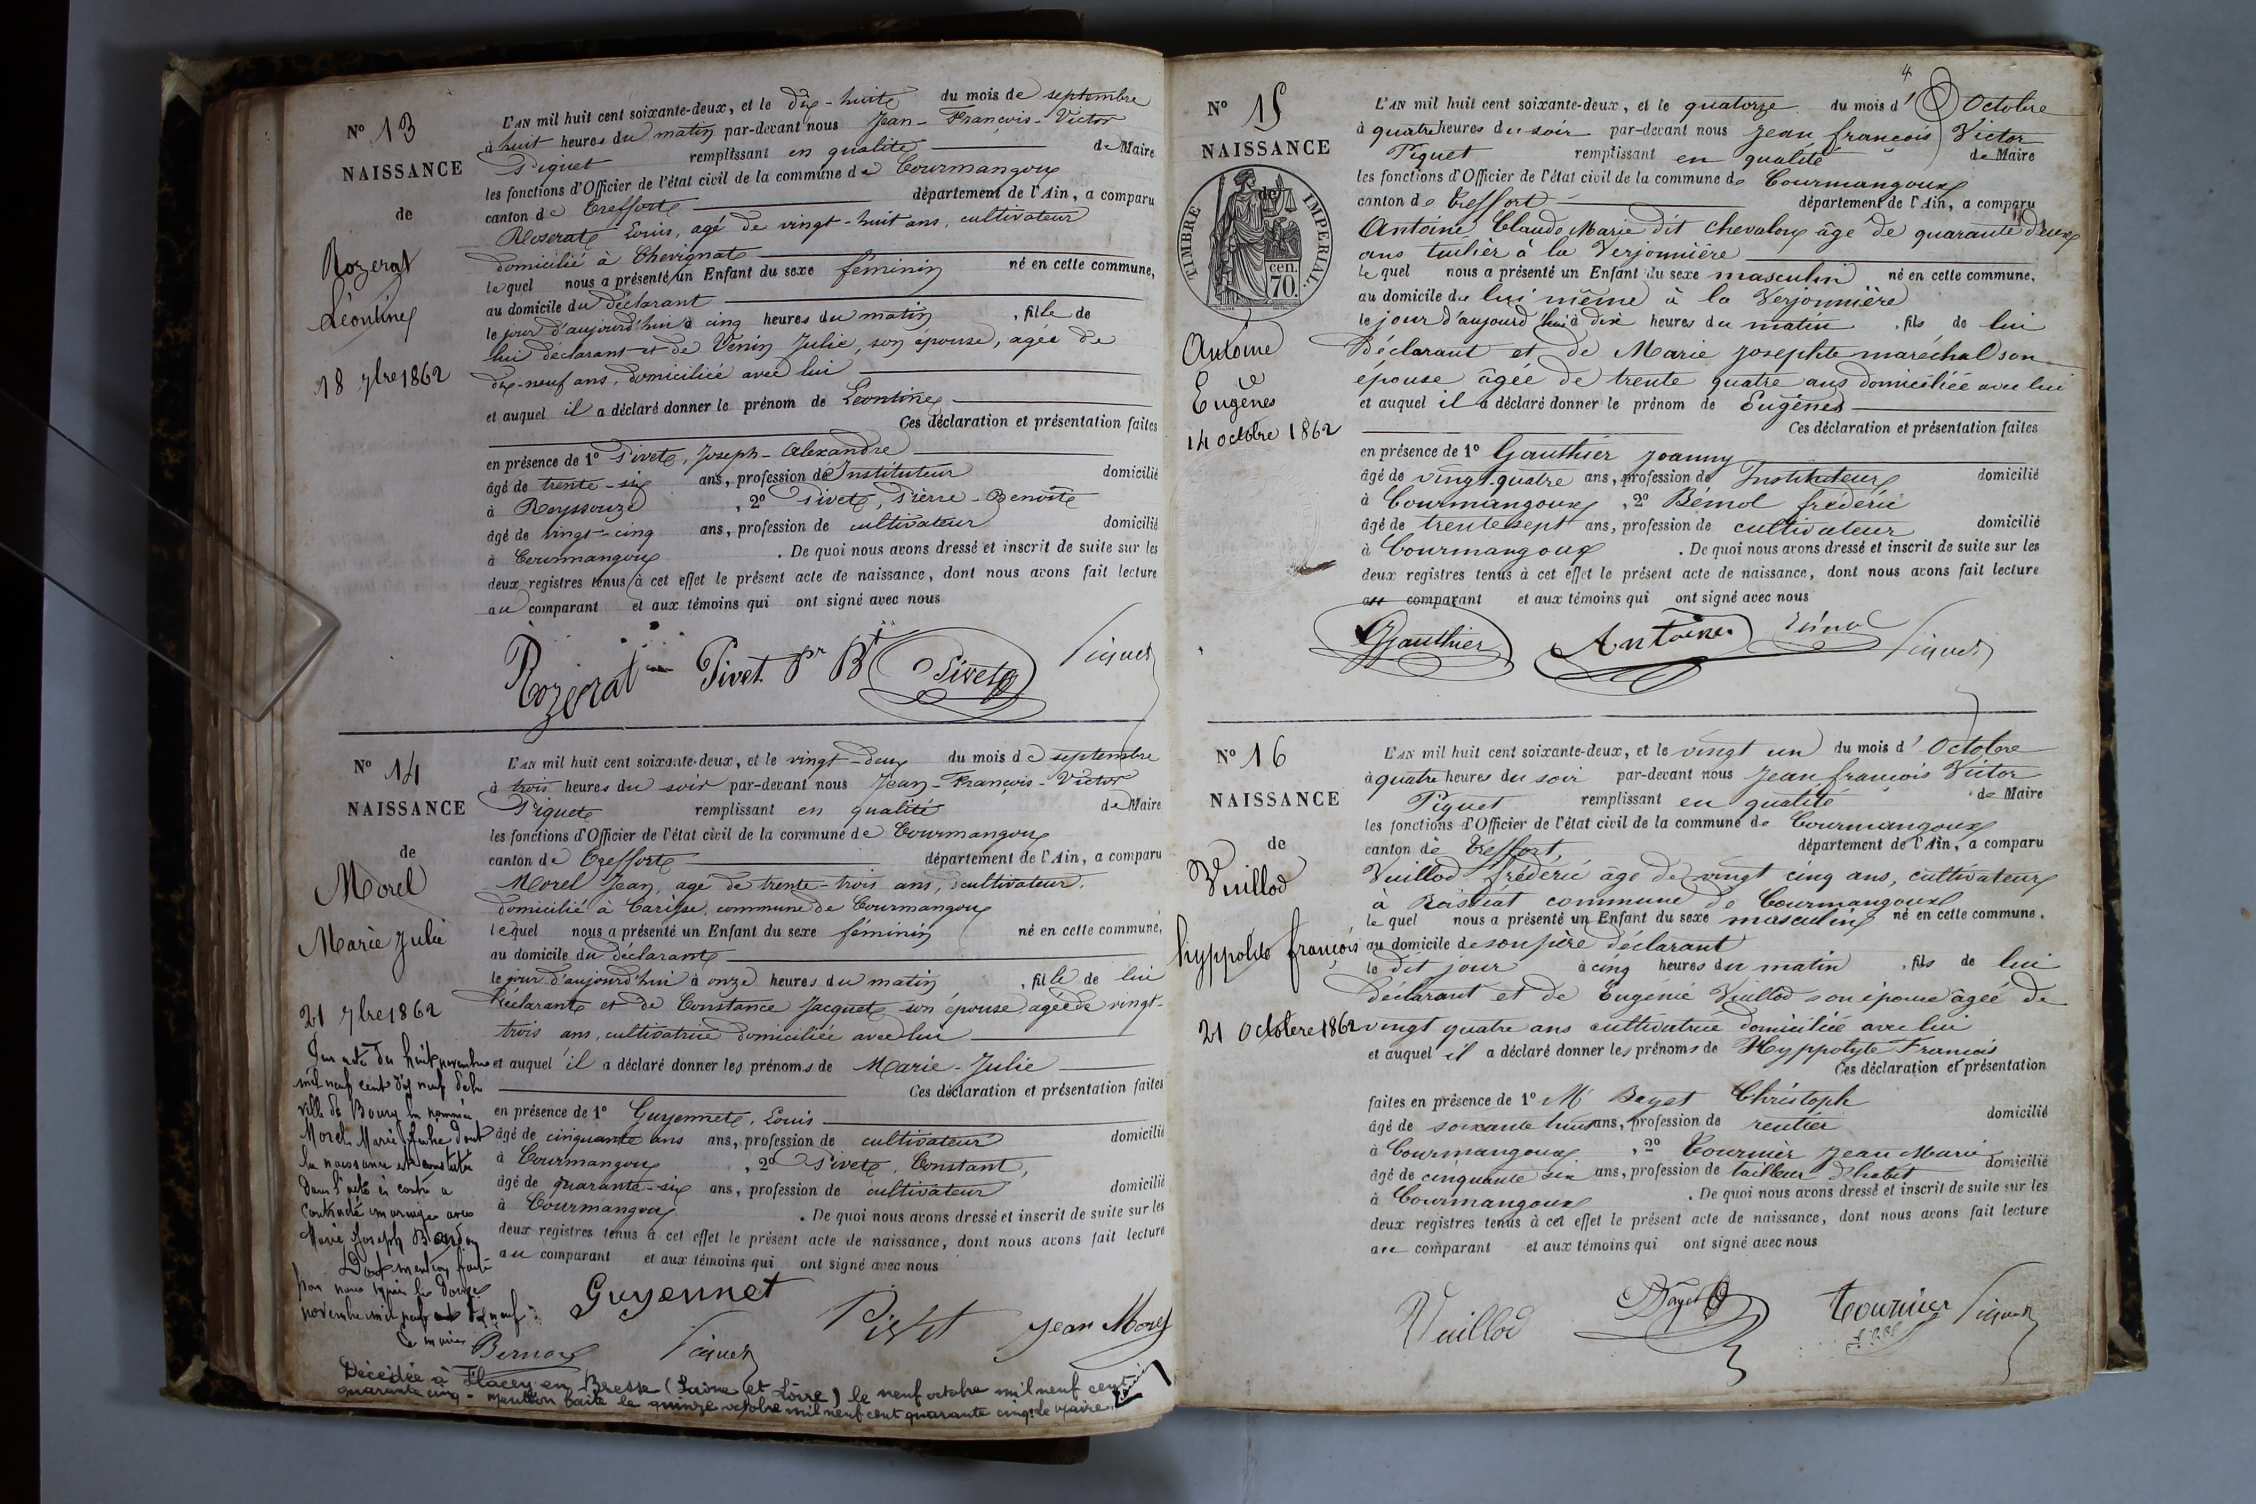 N° 13
NAISSANCE
de
Rozerat
Léontine
18 7bre 1862
L'AN mil huit cent soixante-deux, et le dix-huit du mois de septembre
à huit heures du matin par-devant nous Jean-François-Victor
Piquet remplissant en qualité de Maire
les fonctions d'Officier de l'état civil de la commune de Courmangoux
canton de Treffort département de l'Ain, a comparu
Roserat Louis, agé de vingt-huit ans, cultivateur
domicilié à Chevignat
lequel nous a présenté un Enfant du sexe féminin né en cette commune,
au domicile du déclarant
le jour d'aujourd'hui à cinq heures du matin, fille de
lui déclarant et de Venin Julie, son épouse, agée de
dix-neuf ans, domiciliée avec lui
et auquel il a déclaré donner le prénom de Léontine
Ces déclaration et présentation faites
en présence de 1° Pivet, Joseph-Alexandre
âgé de trente-six ans, profession de Instituteur domicilié
à Reyssouze, 2° Pivet, Pierre-Benoît
âgé de vingt-cinq ans, profession de cultivateur domicilié
à Courmangoux. De quoi nous avons dressé et inscrit de suite sur les
deux registres tenus à cet effet le présent acte de naissance, dont nous avons fait lecture
au comparant et aux témoins qui ont signé avec nous
Rozerat Pivet Pr Bt Pivet Piquet
N° 14
NAISSANCE
de
Morel
Marie Julie
21 7bre 1862
L'AN mil huit cent soixante-deux, et le vingt-deux du mois de septembre
à trois heures du soir par-devant nous Jean-François-Victor
Piquet remplissant en qualité de Maire
les fonctions d'Officier de l'état civil de la commune de Courmangoux
canton de Treffort département de l'Ain, a comparu
Morel Jean, agé de trente-trois ans, cultivateur,
domicilié à Carisse, commune de Courmangoux
lequel nous a présenté un Enfant du sexe féminin né en cette commune,
au domicile du déclarant
le jour d'aujourd'hui à onze heures du matin, fille de lui
déclarant et de Constance Jacquet son épouse, agée de vingt-
trois ans, cultivatrice domiciliée avec lui
et auquel il a déclaré donner les prénoms de Marie-Julie
Ces déclaration et présentation faites
en présence de 1° Guyennet, Louis
âgé de cinquante ans ans, profession de cultivateur domicilié
à Courmangoux, 2° Pivet, Constant,
âgé de quarante-six ans, profession de cultivateur domicilié
à Courmangoux. De quoi nous avons dressé et inscrit de suite sur les
deux registres tenus à cet effet le présent acte de naissance, dont nous avons fait lecture
au comparant et aux témoins qui ont signé avec nous
Guyennet Pivet Jean Morel
Piquet
Par acte du huit novembre
mil neuf cent dix neuf de la
ville de Bourg la nommée
Morel Marie Julie dont
la naissance est constatée
dans l'acte ci contre a
contracté mariage avec
Marie Joseph
Dont mention faite
par nous maire le douze
novembre mil neuf cent dix neuf
Le maire
Bernard
Décédée à Flacey en Bresse (Saône et Loire) le neuf octobre mil neuf cent
quarante cinq - mention faite le quinze octobre mil neuf cent quarante cinq. Le Maire
4
N° 15
NAISSANCE
de
TIMBRE IMPÉRIAL
70 cen.
Antoine
Eugène
14 octobre 1862
L'AN mil huit cent soixante-deux, et le quatorze du mois d'Octobre
à quatre heures du soir par-devant nous Jean françois Victor
Piquet remplissant en qualité de Maire
les fonctions d'Officier de l'état civil de la commune de Courmangoux
canton de Treffort département de l'Ain, a comparu
Antoine Claude Marie dit Chevaloux âgé de quarante deux
ans tuilier à la Verjonnière
lequel nous a présenté un Enfant du sexe masculin né en cette commune,
au domicile de lui même à la Verjonnière
le jour d'aujourd'hui à dix heures du matin, fils de lui
déclarant et de Marie Josephte maréchal son
épouse âgée de trente quatre ans domiciliée avec lui
et auquel il a déclaré donner le prénom de Eugènes
Ces déclaration et présentation faites
en présence de 1° Gauthier Joanny
âgé de vingt-quatre ans, profession de Instituteur domicilié
à Courmangoux, 2° Bémol frédéric
âgé de trente sept ans, profession de cultivateur domicilié
à Courmangoux. De quoi nous avons dressé et inscrit de suite sur les
deux registres tenus à cet effet le présent acte de naissance, dont nous avons fait lecture
au comparant et aux témoins qui ont signé avec nous
Gauthier Antoine Piquet
N° 16
NAISSANCE
de
Vuillod
hyppolite françois
21 Octobre 1862
L'AN mil huit cent soixante-deux, et le vingt un du mois d'Octobre
à quatre heures du soir par-devant nous Jean françois Victor
Piquet remplissant en qualité de Maire
les fonctions d'Officier de l'état civil de la commune de Courmangoux
canton de Treffort, département de l'Ain, a comparu
Vuillod frédéric âgé de vingt cinq ans, cultivateur
à Roissiat commune de Courmangoux
lequel nous a présenté un Enfant du sexe masculin né en cette commune.
au domicile de son père déclarant
le dit jour à cinq heures du matin, fils de lui
déclarant et de Eugénie Vuillod son épouse âgée de
vingt quatre ans cultivatrice domiciliée avec lui
et auquel il a déclaré donner les prénoms de Hyppolyte François
Ces déclaration et présentation
faites en présence de 1° Mr Bayet Christoph
âgé de soixante huit ans, profession de rentier domicilié
à Courmangoux, 2° Tournier Jean Marie
âgé de cinquante six ans, profession de tailleur d'habit domicilié
à Courmangoux. De quoi nous avons dressé et inscrit de suite sur les
deux registres tenus à cet effet le présent acte de naissance, dont nous avons fait lecture
au comparant et aux témoins qui ont signé avec nous
Vuillod Bayet Tournier Piquet